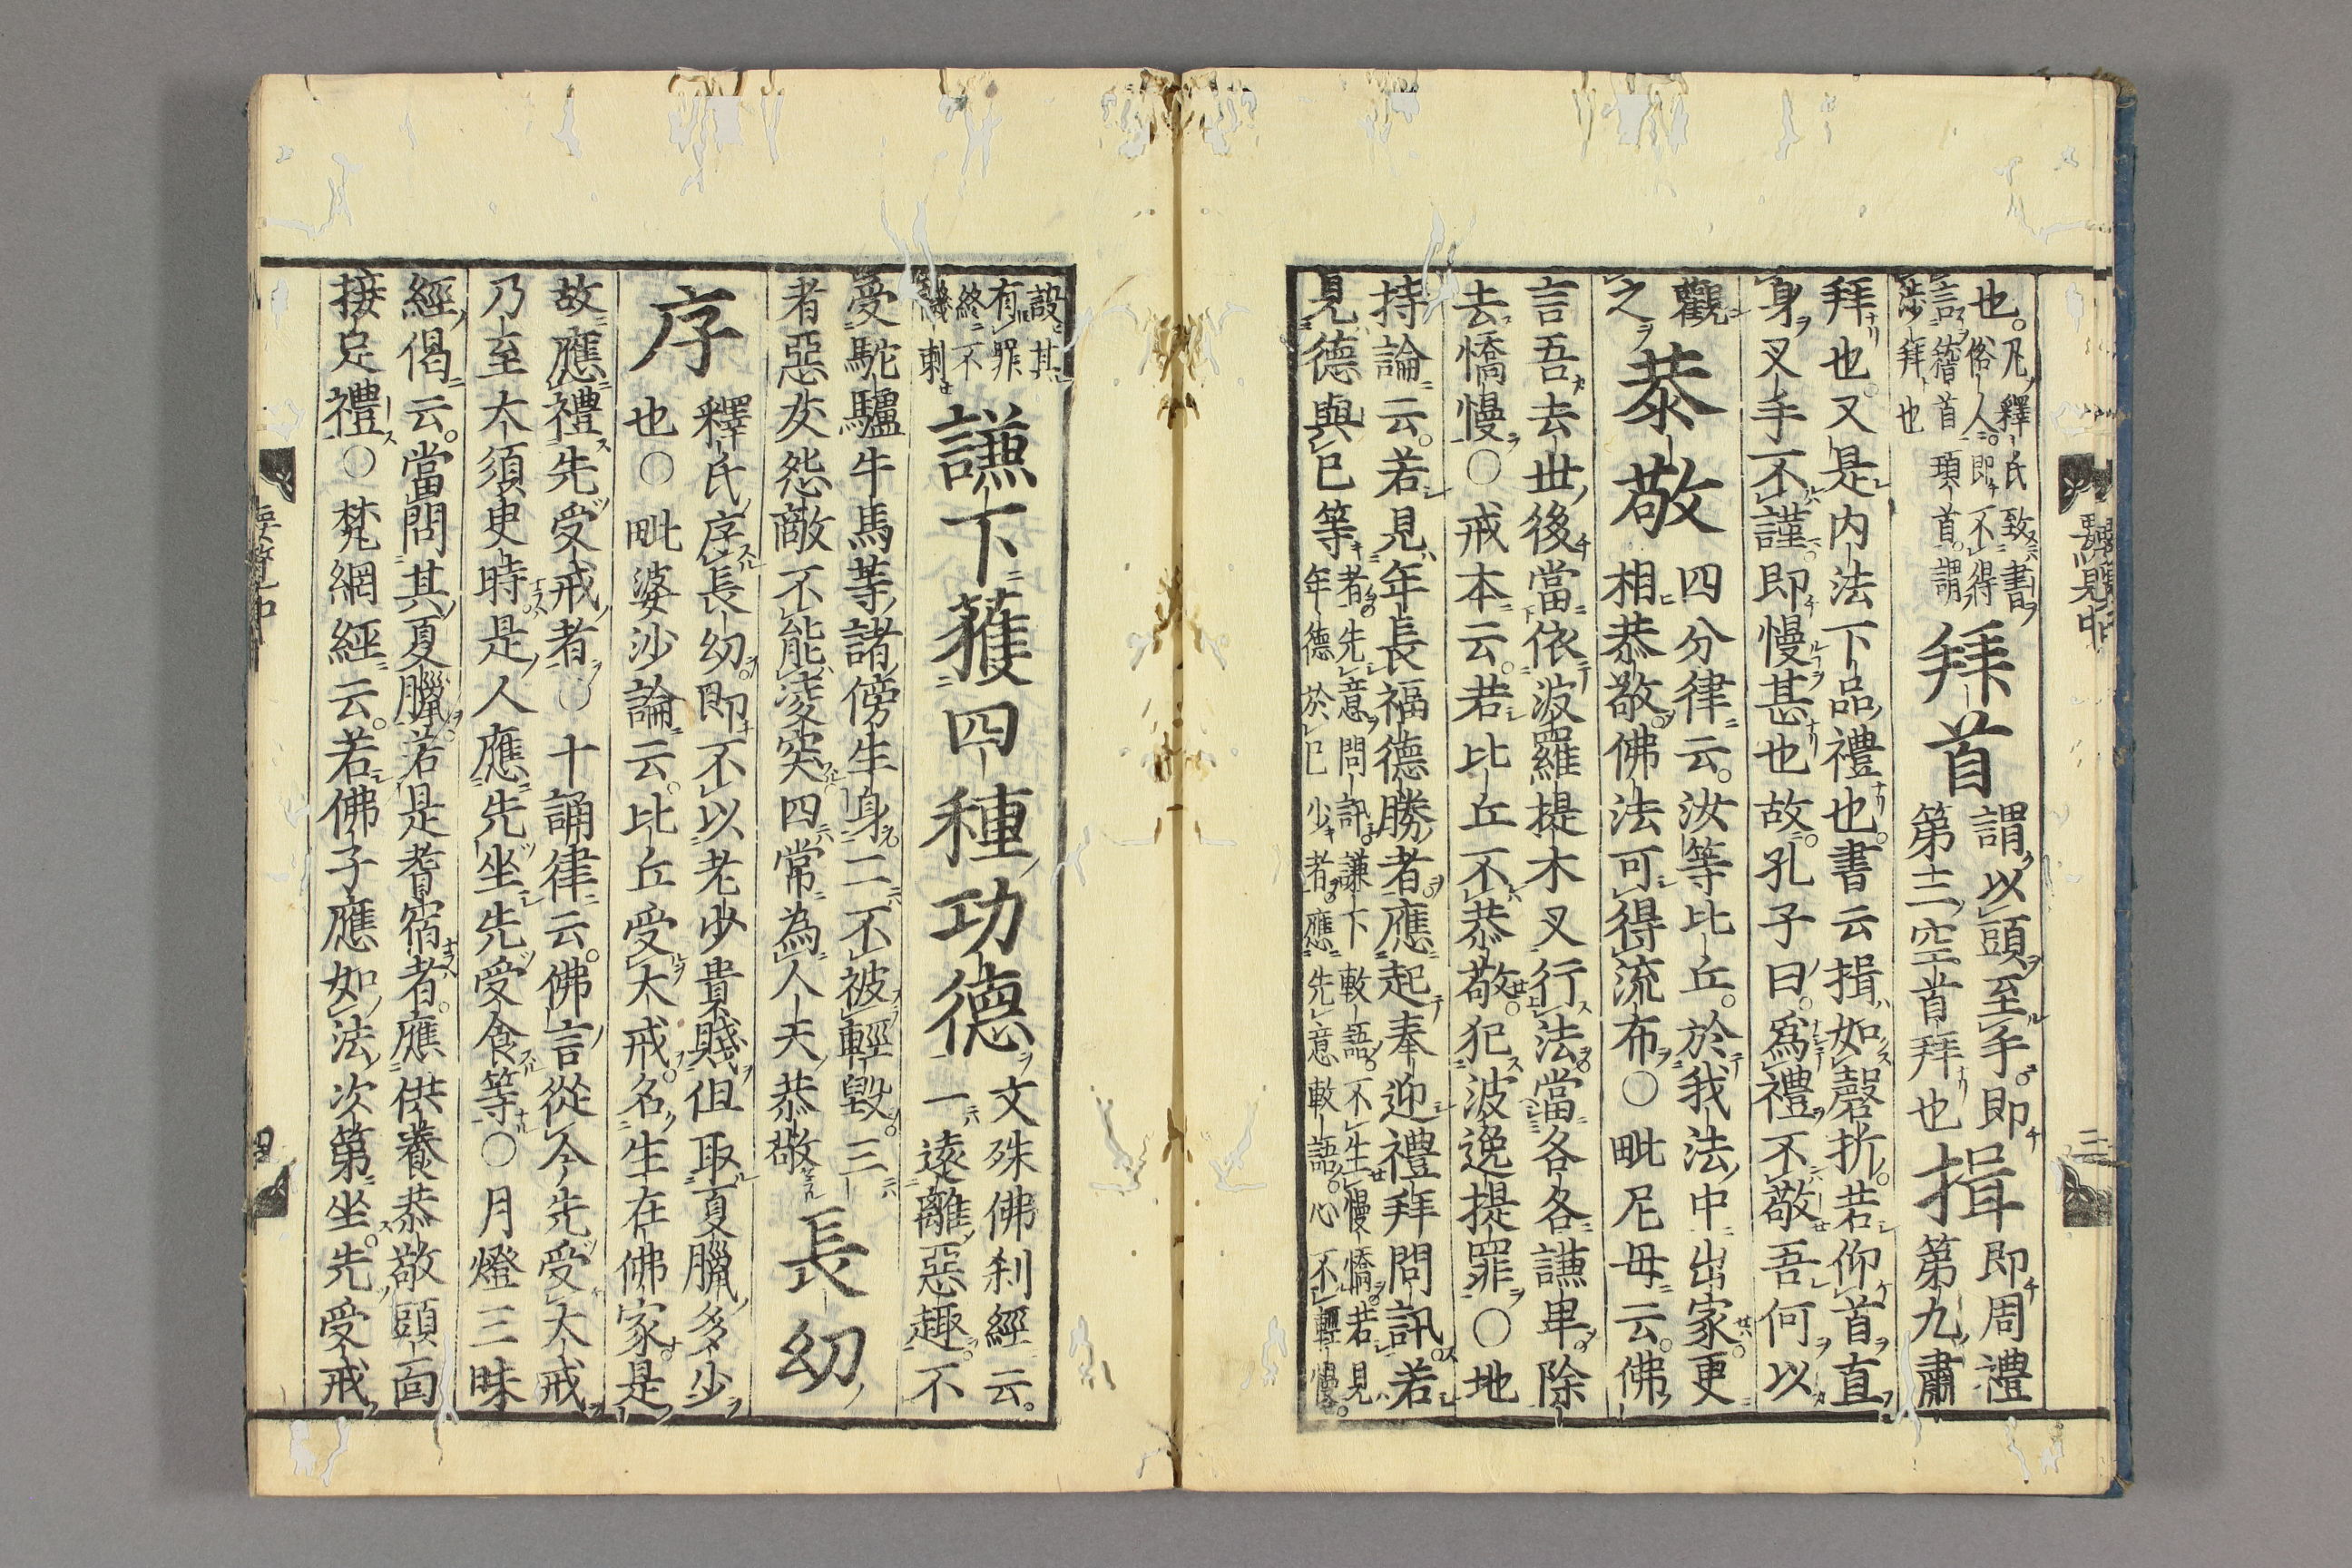 也。凡釋氏致書
俗人。即不得
言稽首頊首。謂
涉拜也
拜首
謂以頭至手。即
第三空首拜也
揖
即周禮
第九肅
拜也。又是内法下品禮也。書云揖如磬折。若仰首直
身叉手不謹即慢甚也故。孔子曰。爲禮不敬吾何以
觀
之
恭敬
四分律云。汝等比丘。於我法中出家。更
相恭敬。佛法可得流布〇毗尼母云。佛
言吾去世後當依波羅提木叉行法。當各各謙卑。除
去憍慢〇戒本云。若比丘不恭敬。犯波逸提罪〇地
持論云。若見年長福德勝者。應起奉迎禮拜問訊。若
見德與已等
者。先意問訊。謙下軟語。不生慢憍。若見
年德於已少者。應先意軟語。心不輕慢。
設其
有罪
終不
譏刺
謙下獲四種功德
文殊佛刹經云。
一遠離惡趣。不
受駝驢牛馬等諸傍生身。二不被輕毀。三
者惡友怨敵不能淩突。四常為人天恭敬
長幼
序
釋氏序長幼。即不以老少貴賤。但取夏臘多少
也〇毗婆沙論云。比丘受大戒。名生在佛家。是
故應禮先受戒者〇十誦律云。佛言從今先受大戒
乃至大須臾時。是人應先坐先受食等〇月燈三昧
經偈云。當問其夏臘。若是耆宿者。應供養恭敬頭面
接足禮〇梵網經云。若佛子應如法次第坐。先受戒
要覽中
三
要覽中
四